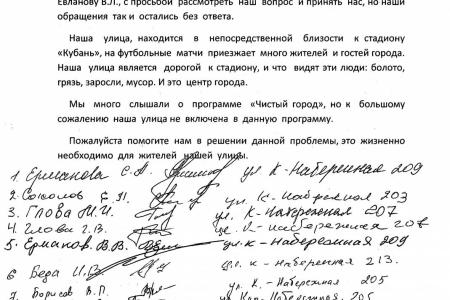 Евланову В.Л., с просьбой рассмотреть наш вопрос и принять нас, но наши
обращения так и остались без ответа.
Наша улица, находится в непосредственной близости к стадиону
«Кубань», на футбольные матчи приезжает много жителей и гостей города.
Наша улица является дорогой к стадиону, и что видят эти люди: болото,
грязь, заросли, мусор. И это центр города.
Мы много слышали о программе «Чистый город», но к большому
сожалению наша улица не включена в данную программу.
Пожалуйста помогите нам в решении данной проблемы, это жизненно
необходимо для жителей нашей улицы.
1 Ермакова С.А. ул К-Набережная 209
2. Соколов ул. К-Набережная 203
3. Глова М.И. ул. К-Набережная 207
4. Глова Г.В. ул. К-Набережная 207
5. Ермаков. В.В. ул. К-Набережная 209
6 Беда И.В. ул. К-Набережная 213.
7. Борисов В.П. ул К-Набережная 205
Набережная 205